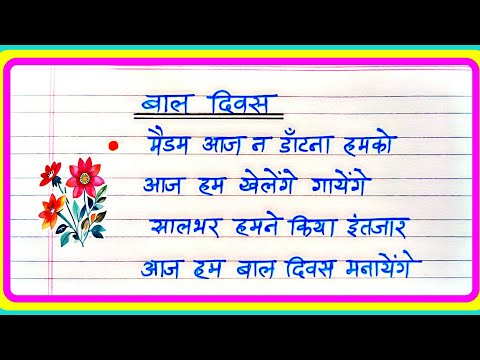 बाल दिवस
मैडम आज न डाँटना हमको
आज हम खेलेंगे गायेंगे
सालभर हमने किया इंतजार
आज हम बाल दिवस मनायेंगे